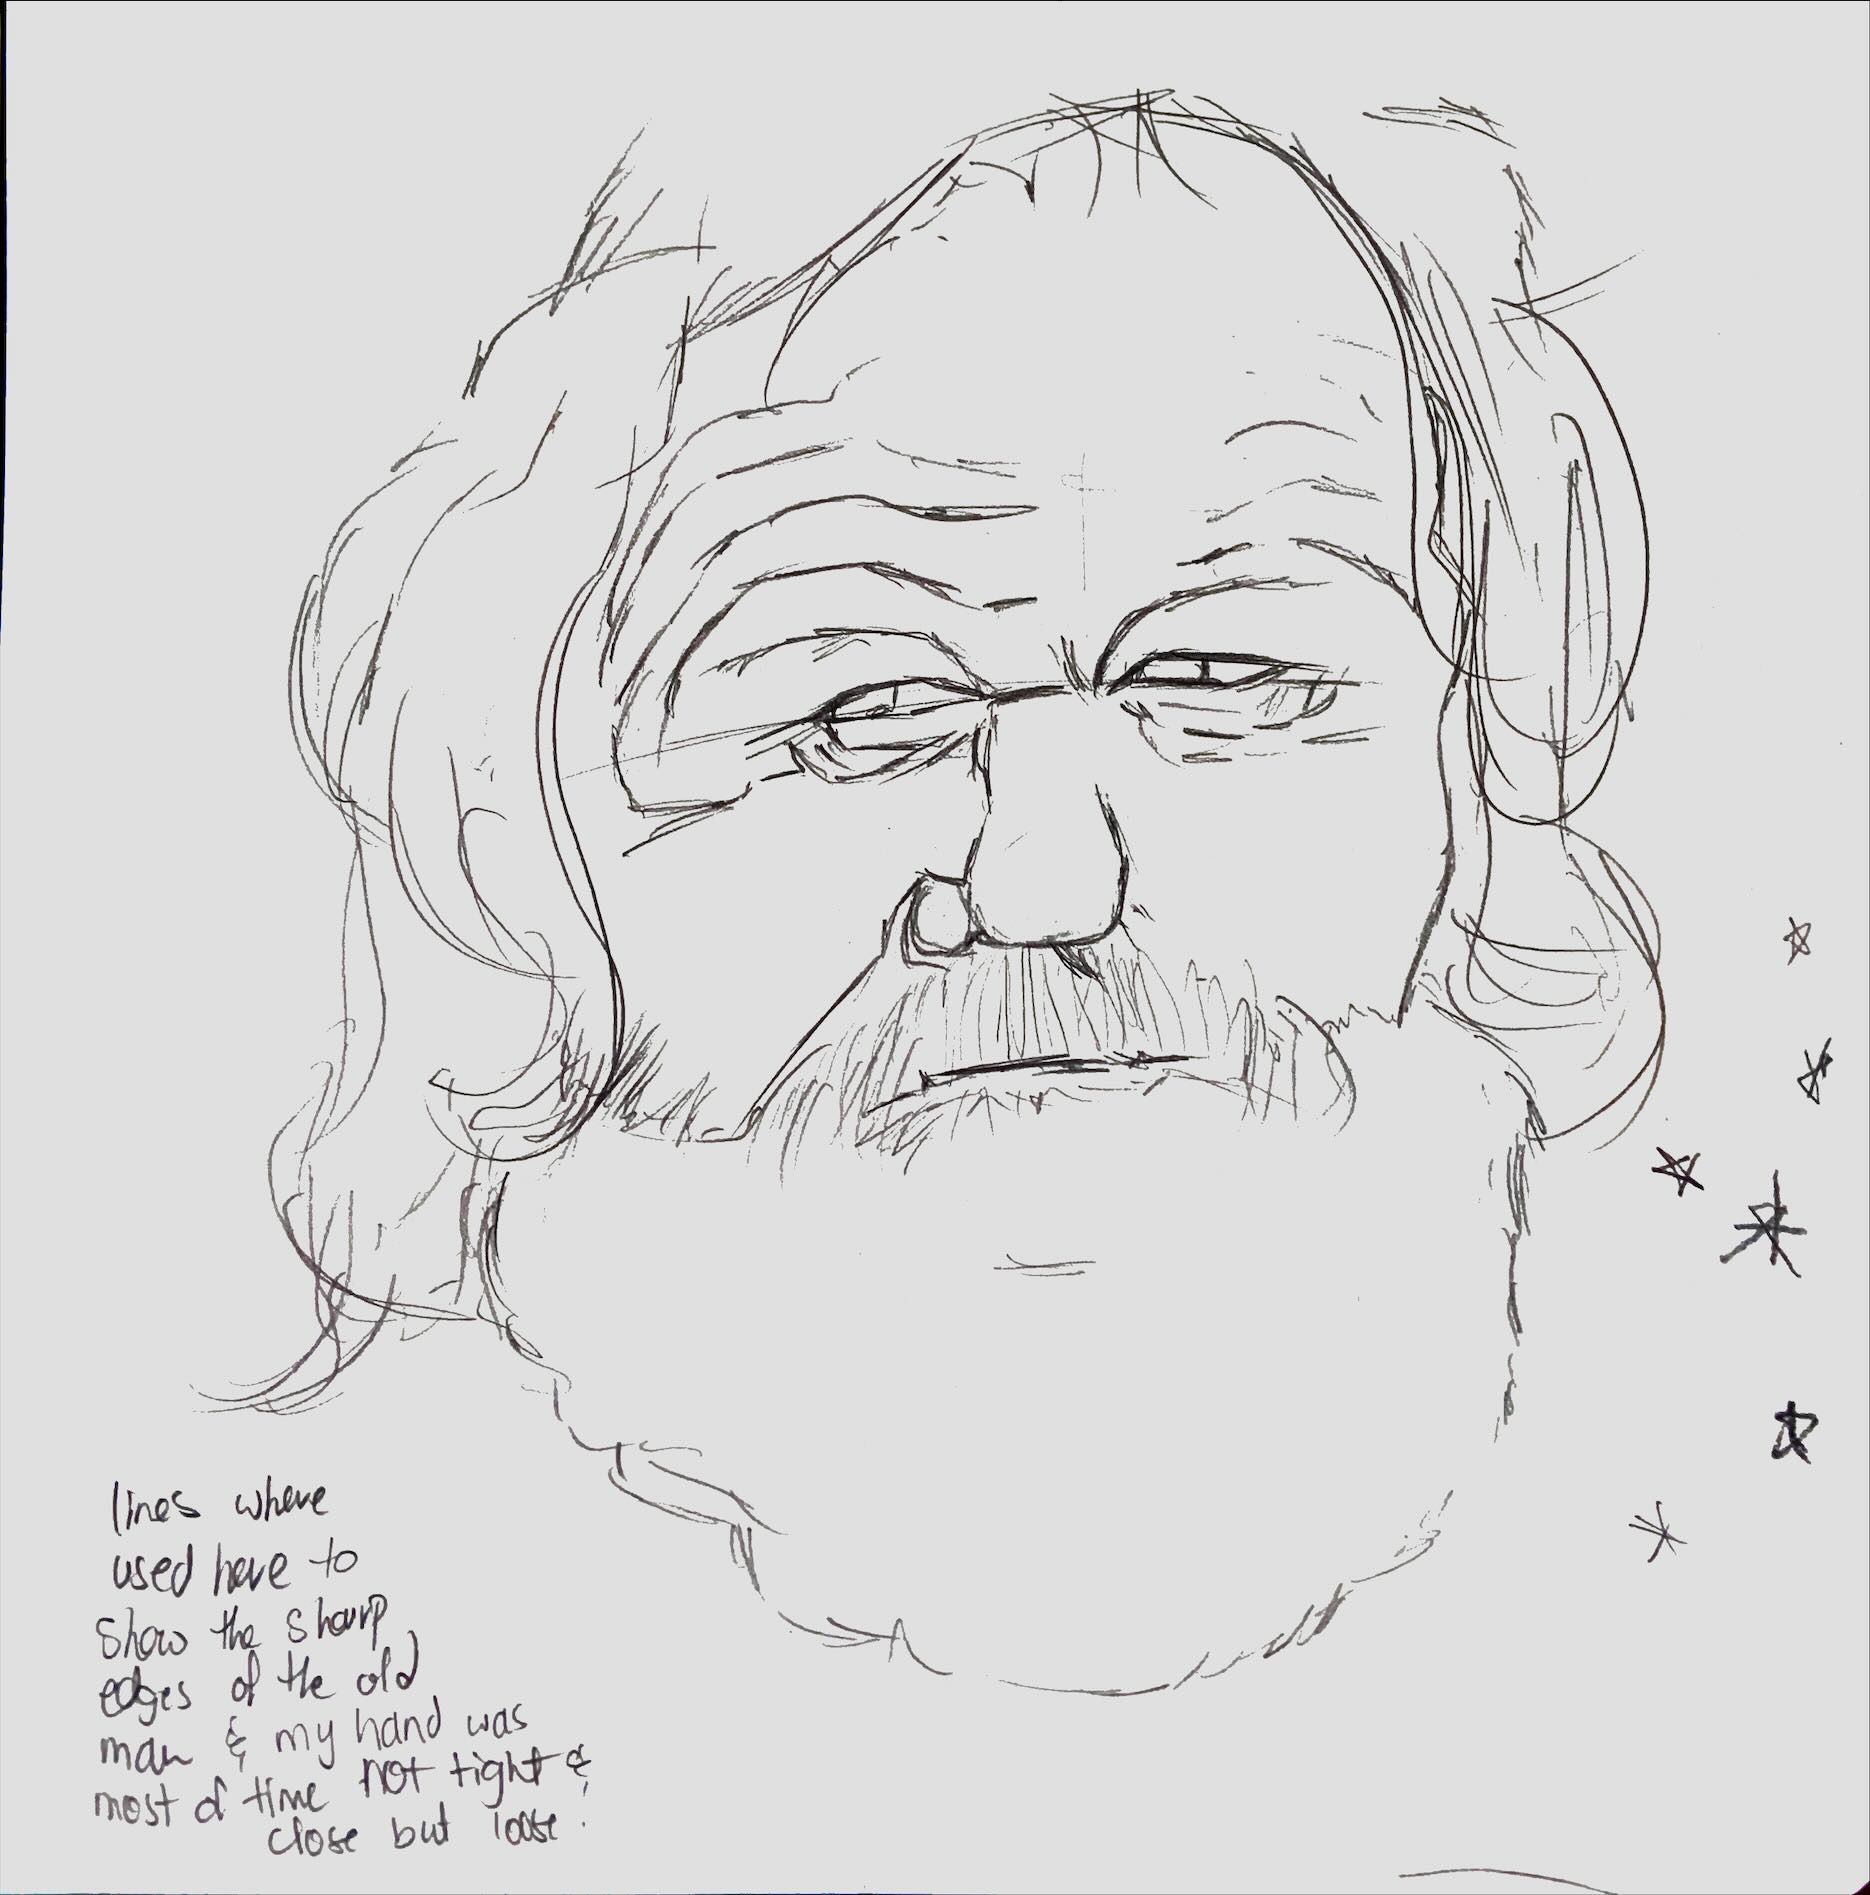 lines where
used here to
show the sharp
edges of the old
man & my hand was
most of time not tight &
close but loose!